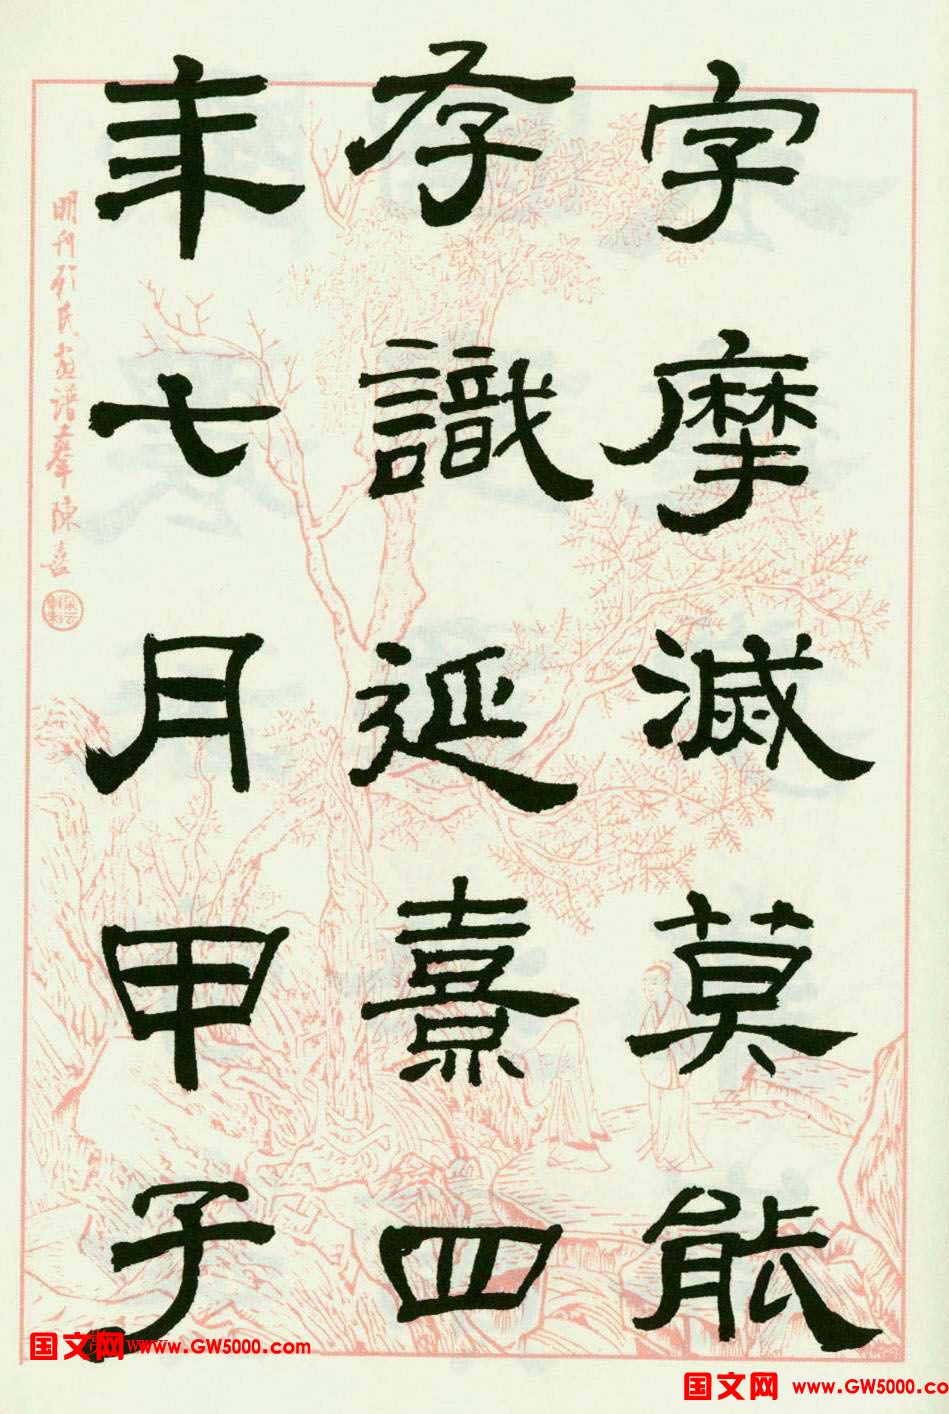 字摩滅莫能
存識延熹四
年七月甲子
明刊顧氏畫譜
國文网 www.GW5000.com
国文网 www.GW5000.co